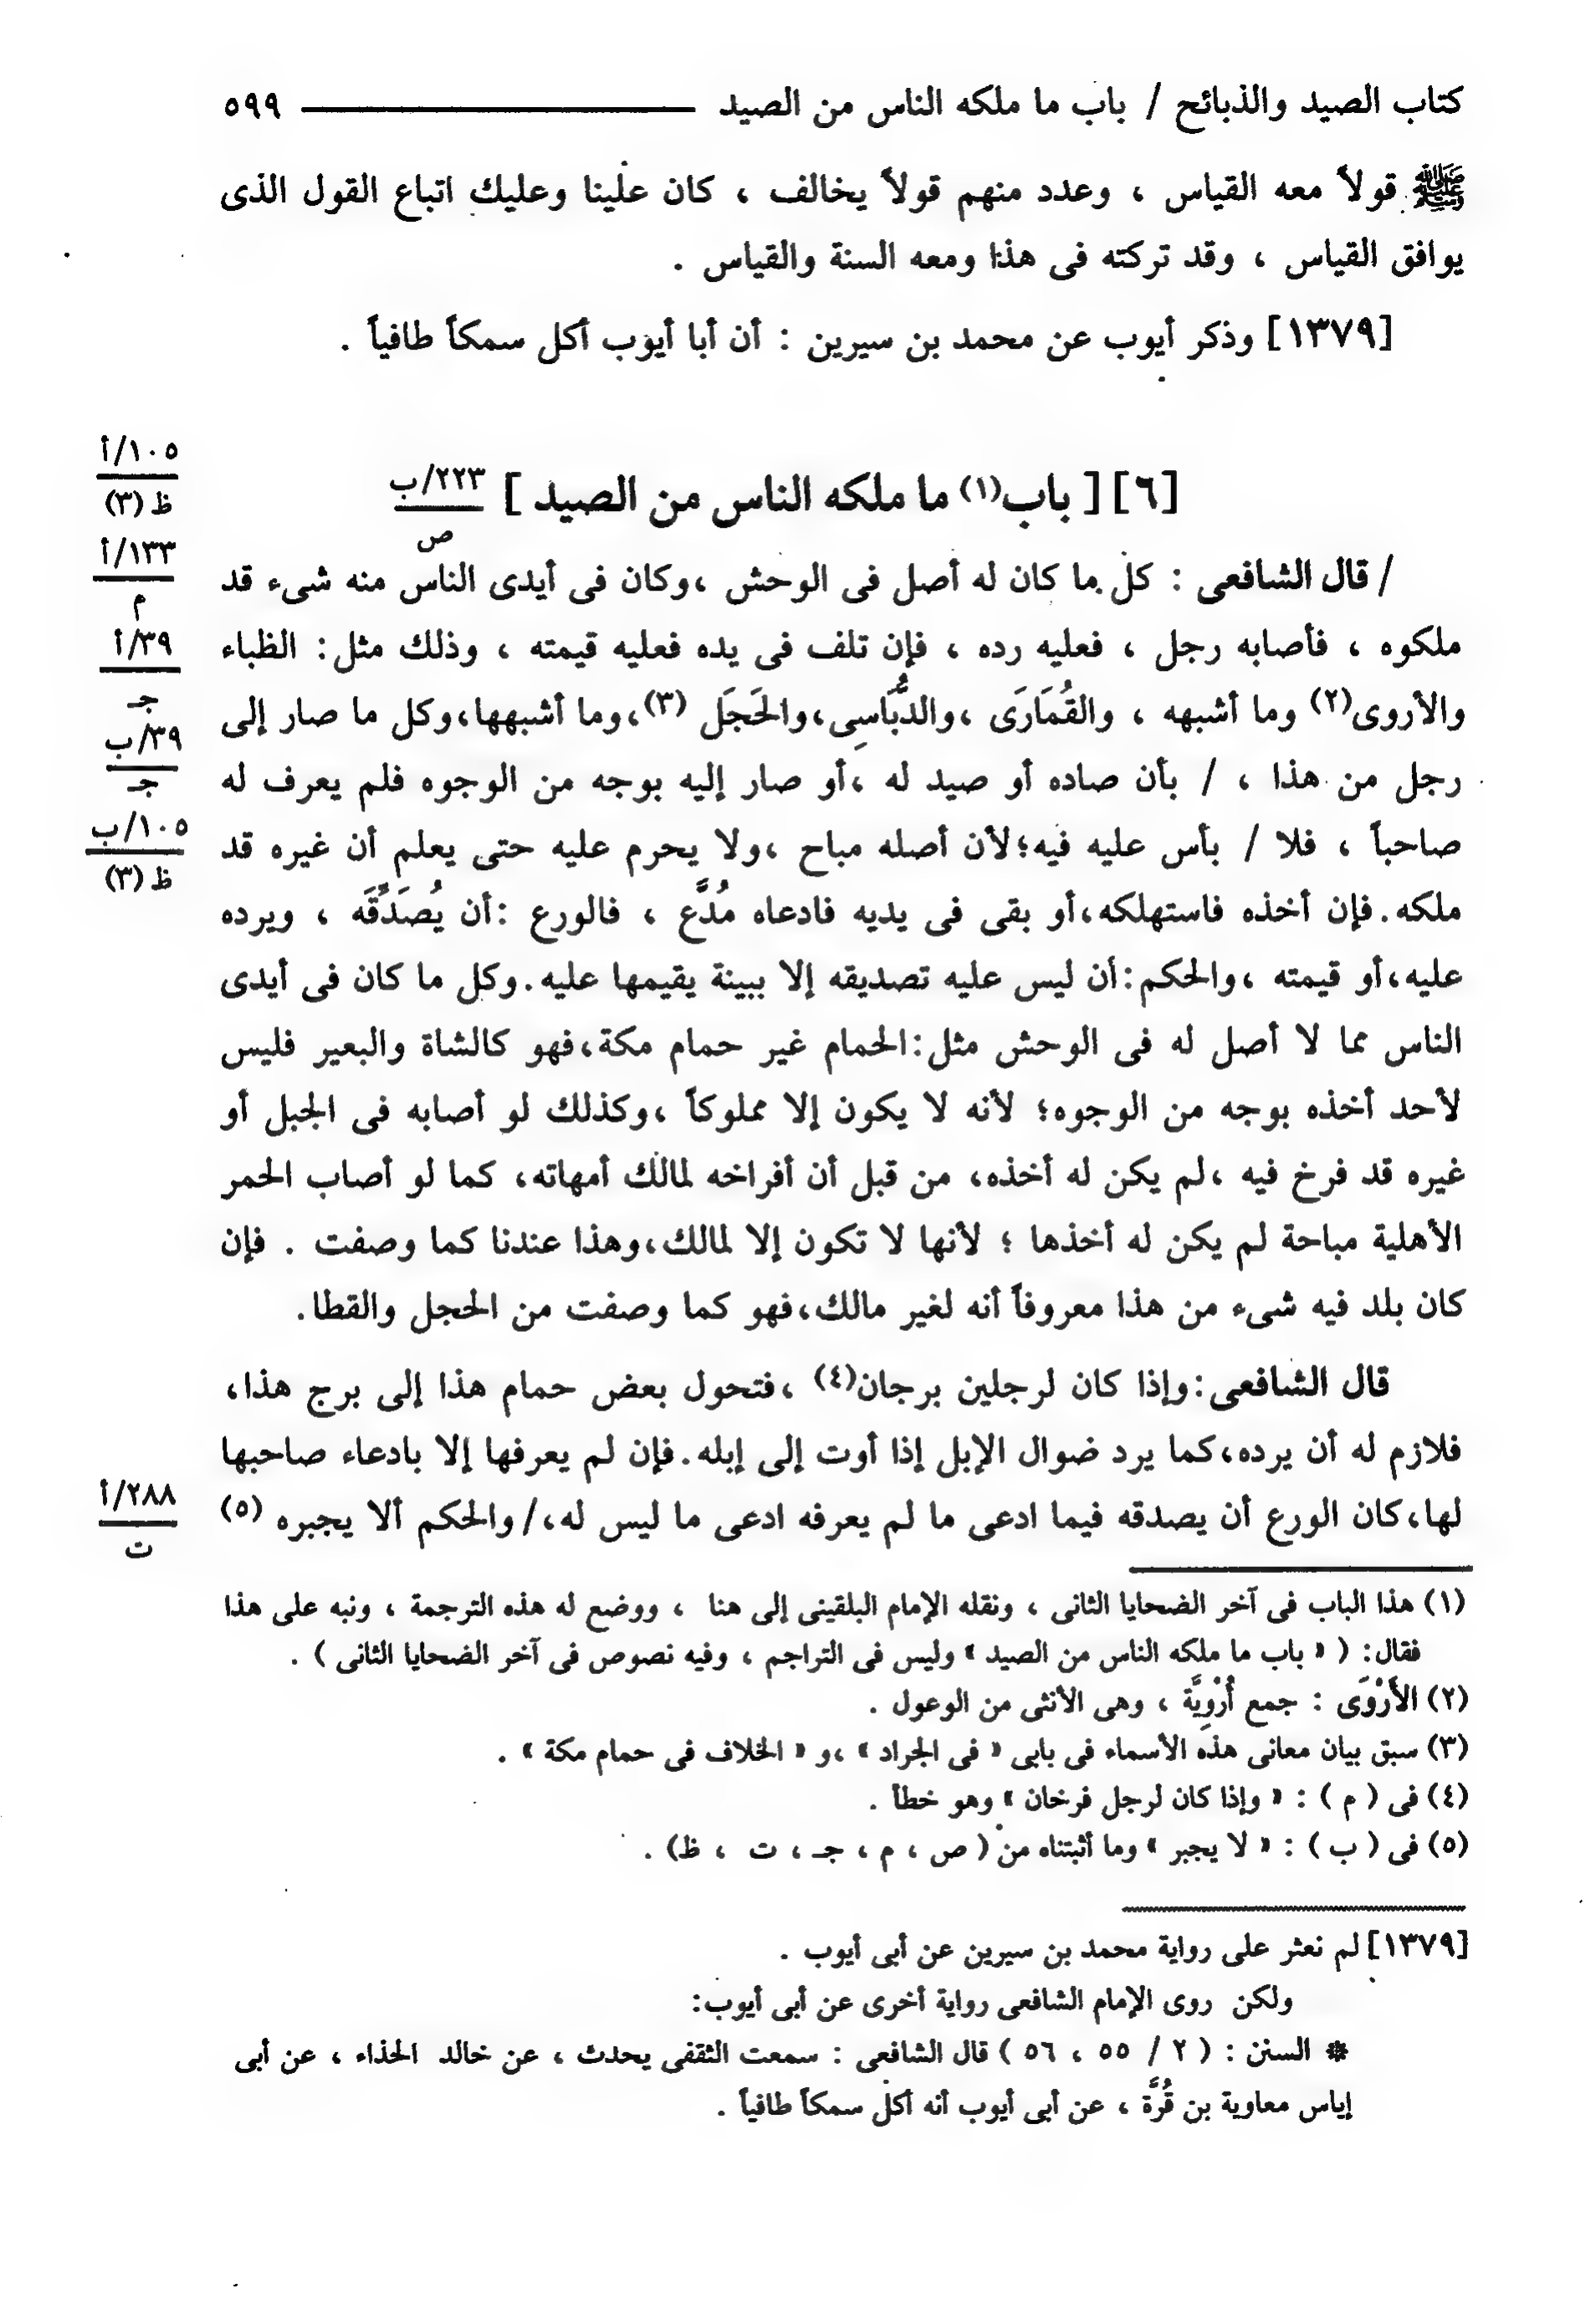 كتاب الصيد والذبائح / باب ما ملكه الناس من الصيد ٥٩٩
ﷺ قولاً معه القياس ، وعدد منهم قولاً يخالف ، كان علينا وعليك اتباع القول الذى
يوافق القياس ، وقد تركته فى هذا ومعه السنة والقياس .
[١٣٧٩] وذكر أيوب عن محمد بن سيرين : أن أبا أيوب أكل سمكاً طافياً .
[٦] [ باب(١) ما ملكه الناس من الصيد ] ٢٢٣/ب
ص
١٠٥/أ
ظ (٣)
١٣٣/أ
م
٣٩/أ
جـ
٣٩/ب
جـ
١٠٥/ب
ظ (٣)
/ قال الشافعى : كل ما كان له أصل فى الوحش ،وكان فى أيدى الناس منه شىء قد
ملكوه ، فأصابه رجل ، فعليه رده ، فإن تلف فى يده فعليه قيمته ، وذلك مثل: الظباء
والأروى(٢) وما أشبهه ، والقُمَارَى ،والدُّبَاسِى،والحَجَل (٣)،وما أشبهها،وكل ما صار إلى
رجل من هذا ، / بأن صاده أو صيد له ،أو صار إليه بوجه من الوجوه فلم يعرف له
صاحباً ، فلا / بأس عليه فيه؛لأن أصله مباح ،ولا يحرم عليه حتى يعلم أن غيره قد
ملكه. فإن أخذه فاستهلكه،أو بقى فى يديه فادعاه مُدَّع ، فالورع :أن يُصَدِّقَه ، ويرده
عليه،أو قيمته ،والحكم:أن ليس عليه تصديقه إلا ببينة يقيمها عليه.وكل ما كان فى أيدى
الناس مما لا أصل له فى الوحش مثل:الحمام غير حمام مكة،فهو كالشاة والبعير فليس
لأحد أخذه بوجه من الوجوه؛ لأنه لا يكون إلا مملوكاً ،وكذلك لو أصابه فى الجبل أو
غيره قد فرخ فيه ،لم يكن له أخذه، من قبل أن أفراخه لمالك أمهاته، كما لو أصاب الحمر
الأهلية مباحة لم يكن له أخذها ؛ لأنها لا تكون إلا لمالك،وهذا عندنا كما وصفت . فإن
كان بلد فيه شىء من هذا معروفاً أنه لغير مالك،فهو كما وصفت من الحجل والقطا.
قال الشافعى:وإذا كان لرجلين برجان(٤) ،فتحول بعض حمام هذا إلى برج هذا،
فلازم له أن يرده،كما يرد ضوال الإبل إذا أوت إلى إبله.فإن لم يعرفها إلا بادعاء صاحبها
لها،كان الورع أن يصدقه فيما ادعى ما لم يعرفه ادعى ما ليس له،/والحكم ألا يجبره (٥)
٢٨٨/أ
ت
(١) هذا الباب فى آخر الضحايا الثانى ، ونقله الإمام البلقينى إلى هنا ، ووضع له هذه الترجمة ، ونبه على هذا
فقال: ( « باب ما ملكه الناس من الصيد » وليس فى التراجم ، وفيه نصوص فى آخر الضحايا الثانى ) .
(٢) الأَرْوَى : جمع أُرْوِيَّة ، وهى الأنثى من الوعول .
(٣) سبق بيان معانى هذه الأسماء فى بابى « فى الجراد » ،و « الخلاف فى حمام مكة » .
(٤) فى ( م ) : « وإذا كان لرجل فرخان » وهو خطأ .
(٥) فى ( ب ) : « لا يجبر » وما أثبتناه من ( ص ، م ، جـ ، ت ، ظ) .
[١٣٧٩] لم نعثر على رواية محمد بن سيرين عن أبى أيوب .
ولكن روى الإمام الشافعى رواية أخرى عن أبى أيوب:
* السنن : ( ٢ / ٥٥ ، ٥٦ ) قال الشافعى : سمعت الثقفى يحدث ، عن خالد الحذاء ، عن أبى
إياس معاوية بن قُرَّة ، عن أبى أيوب أنه أكل سمكاً طافياً .